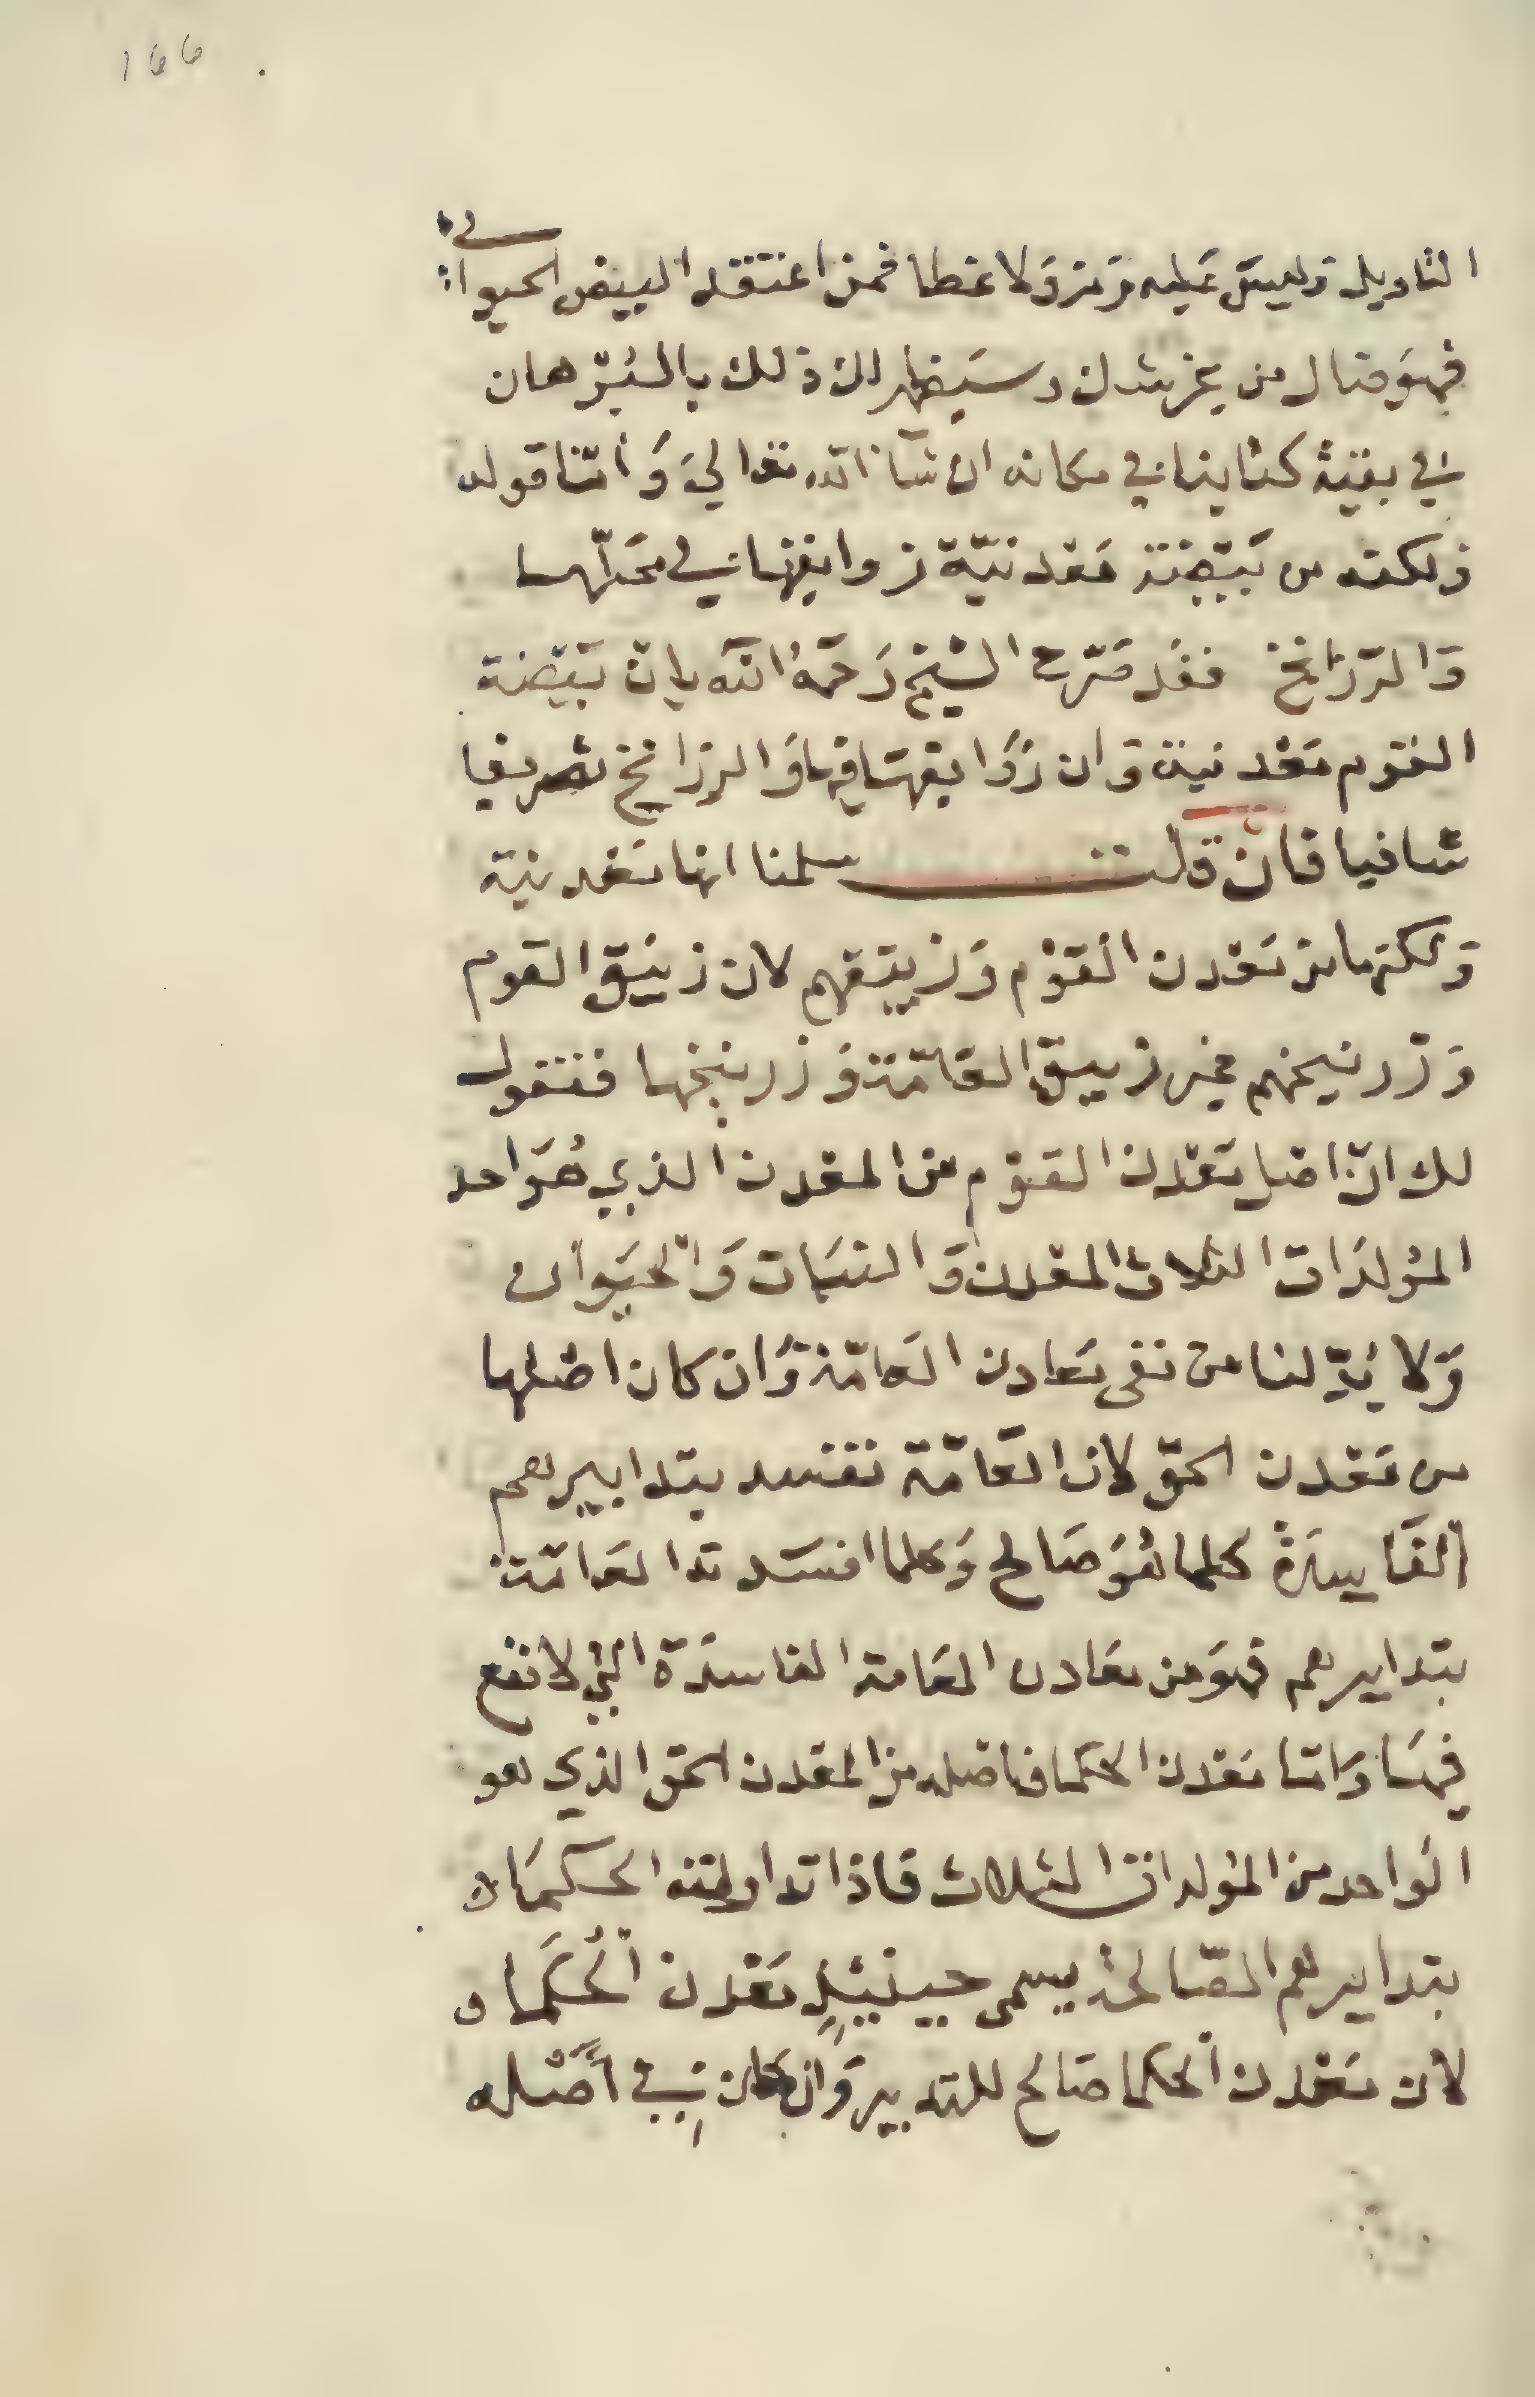 166
التاويل وليس عليه رمز ولا غطا فمن اعتقد البيض الحيواني
فهو ضال من غير شك وسيظهر لك ذلك بالبرهان
في بقية كتابنا في مكانه ان شآ الله تعالي وأما قوله
ولكنه من بيضة معدنية زوابقها في محلها
والزرانخ فقد صرح الشيخ رحمه الله بان بيضة
القوم معدنية وان زوابقها فيها والزرانخ تصريفا
شافيا فان قلت سلمنا انها معدنية
ولكنها من معدن القوم وزيبقهم لان زيبق القوم
وزرنيخهم غير زيبق العامة وزرنيخها فنقول
لك ان اصل معدن القوم من المعدن الذي هو احد
المولدات الثلاث المعدن والنبات والحيوان
ولا بد لنا من نفي معادن العامة وان كان اصلها
من معدن الحق لان العامة تفسد بتدابيرهم
الفاسدة كلما هو صالح وكلما افسدته العامة
بتدابيرهم فهو من معادن العامة الفاسدة التي لا نفع
فيها واما معدن الحكما فاصله من المعدن الحق الذي هو
الواحد من المولدات الثلاث فاذا تداولته الحكما
بتدابيرهم الصالحة يسمى حينيذ معدن الحكما
لان معدن الحكما صالح للتدبير وان كان في أصله